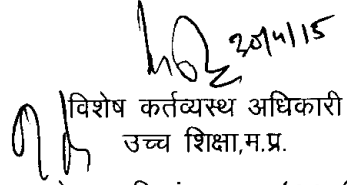 20/4/15
विशेष कर्तव्यस्थ अधिकारी
उच्च शिक्षा,म.प्र.